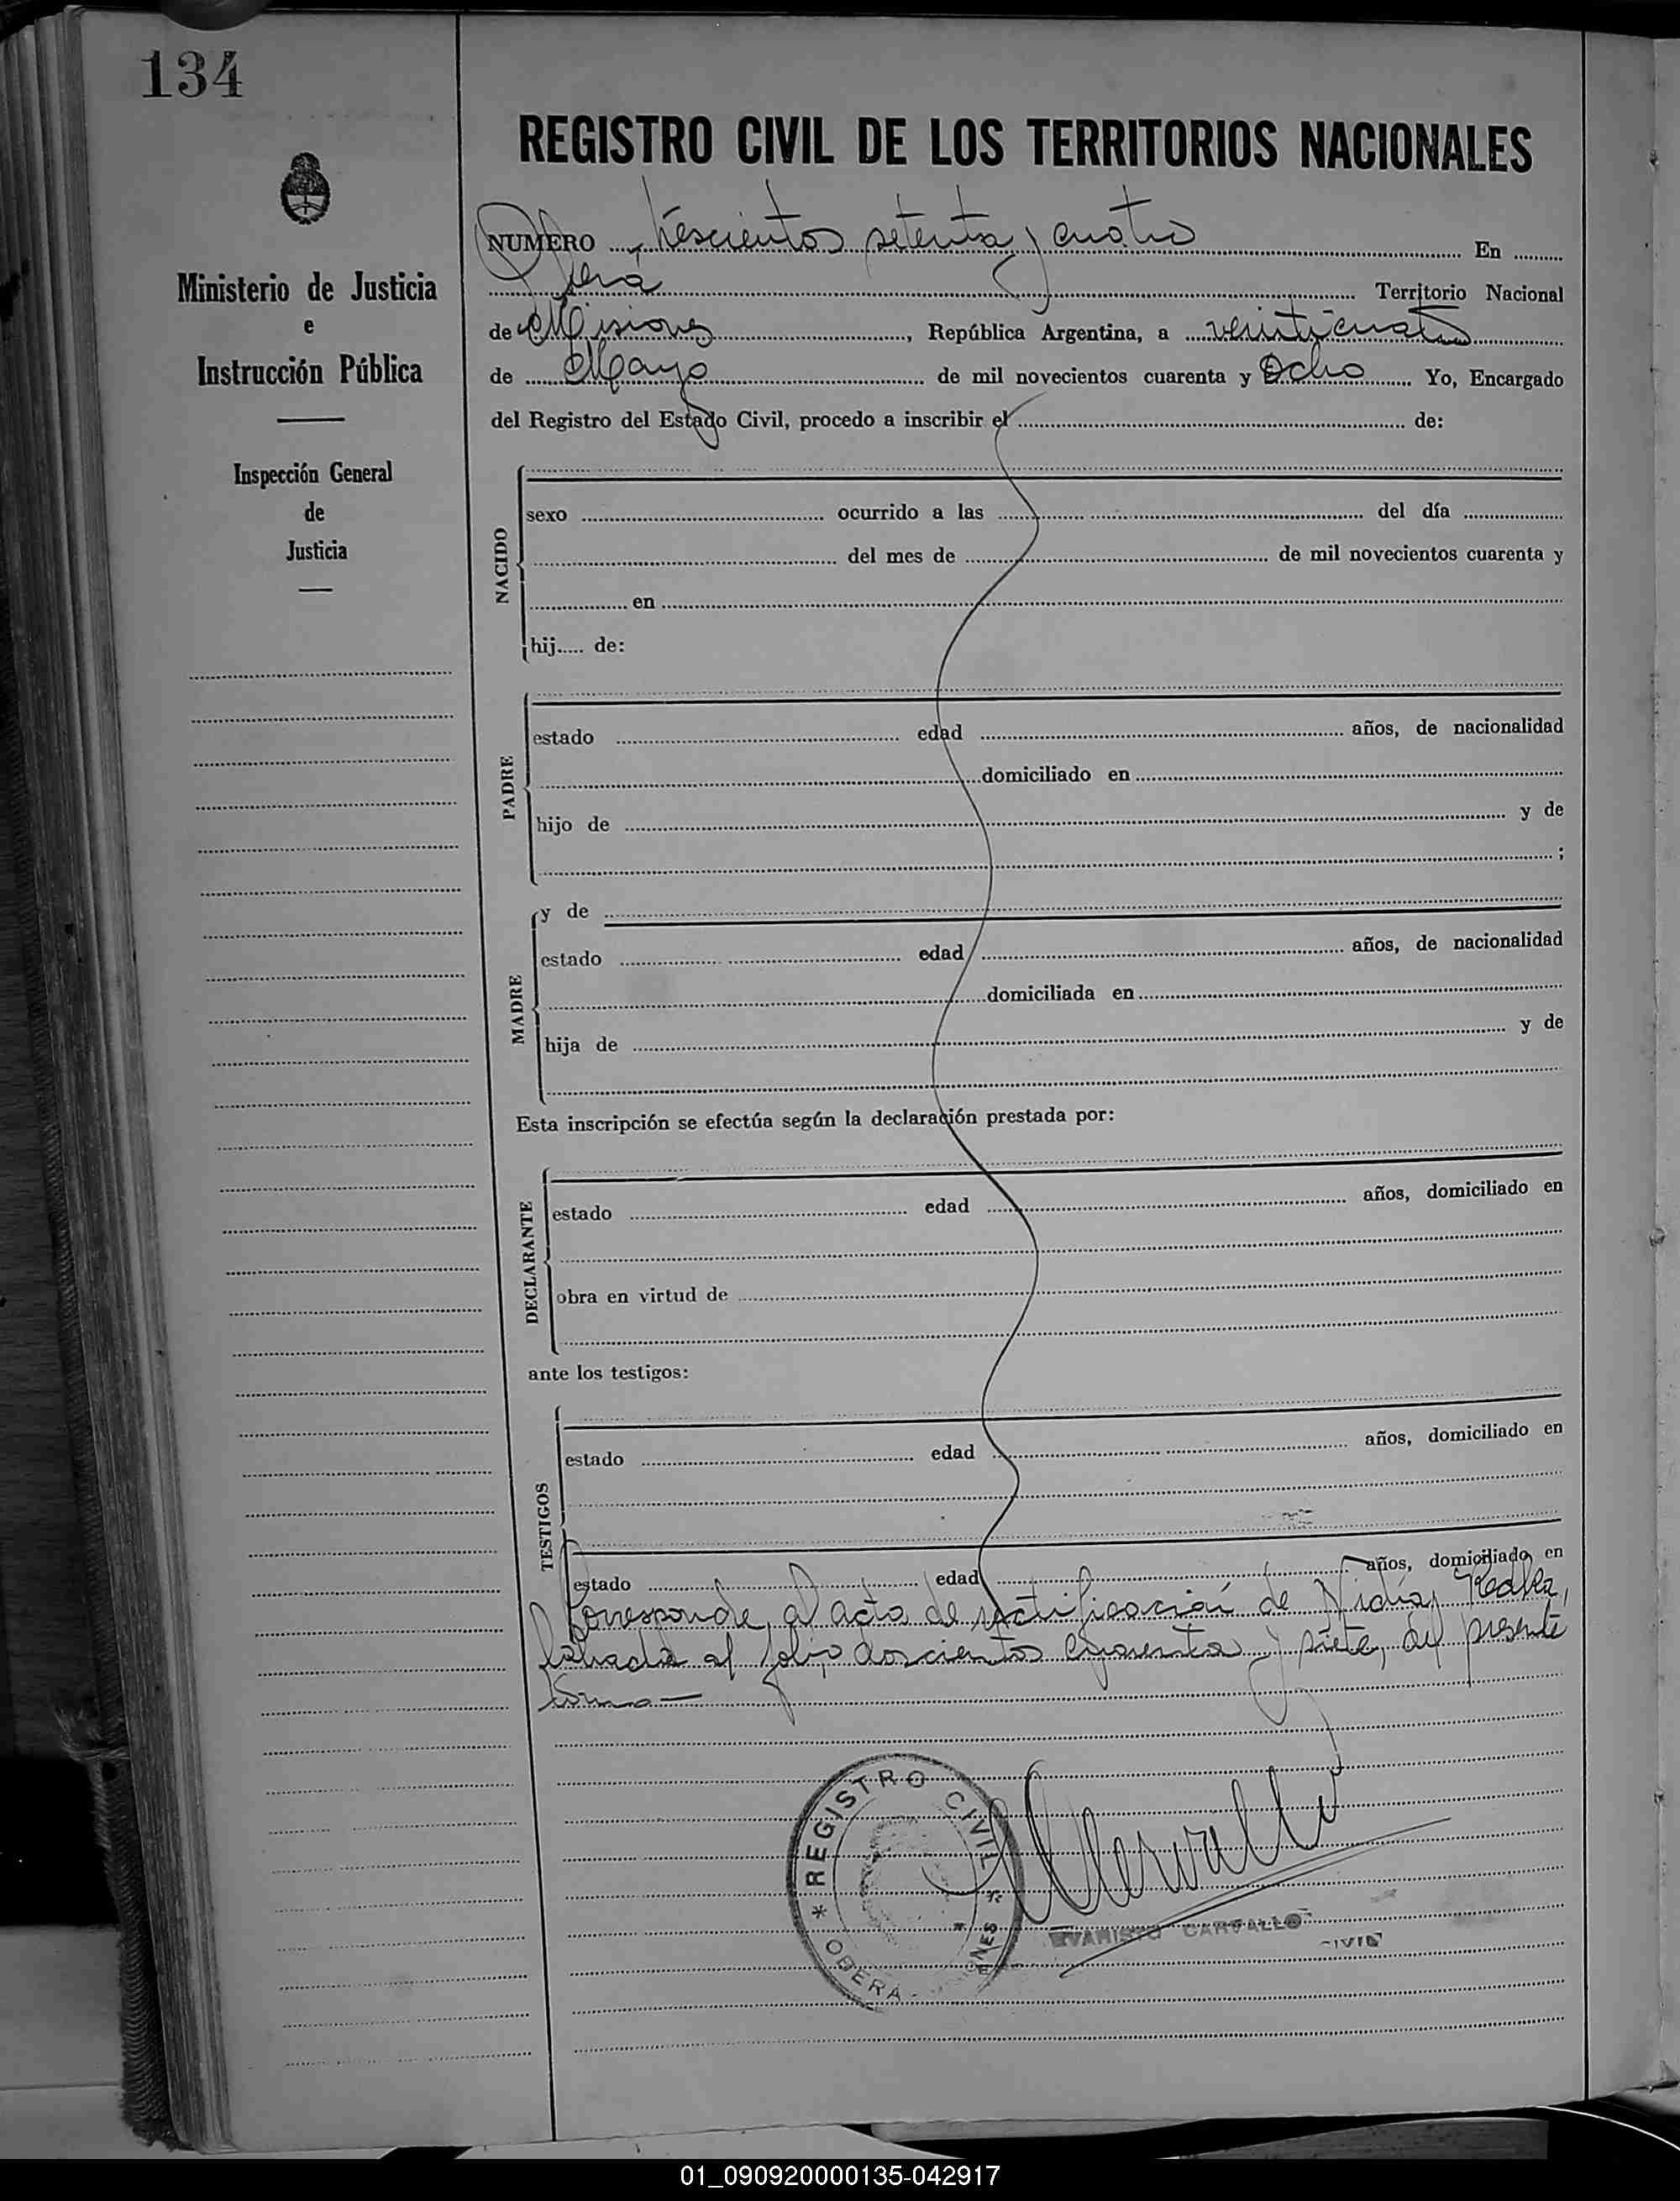 134
REGISTRO CIVIL DE LOS TERRITORIOS NACIONALES
Ministerio de Justicia
e
Instrucción Pública
Inspección General
de
Justicia
NUMERO trescientos setenta y cuatro En
Oberá Territorio Nacional
de Misiones, República Argentina, a veinticuatro
de Mayo de mil novecientos cuarenta y Ocho Yo, Encargado
del Registro del Estado Civil, procedo a inscribir el de:
NACIDO
sexo ocurrido a las del día
del mes de de mil novecientos cuarenta y
en
hij..... de:
PADRE
estado edad años, de nacionalidad
domiciliado en
hijo de y de
;
MADRE
y de
estado edad años, de nacionalidad
domiciliada en
hija de y de
Esta inscripción se efectúa según la declaración prestada por:
DECLARANTE
estado edad años, domiciliado en
obra en virtud de
ante los testigos:
TESTIGOS
estado edad años, domiciliado en
estado edad años, domiciliado en
Corresponde al acta de rectificación de Nidia
labrada al folio doscientos cuarenta y siete, del presente
tomo—
REGISTRO CIVIL
OBERA
EVARISTO CARVALLO
CIVIL
01_090920000135-042917